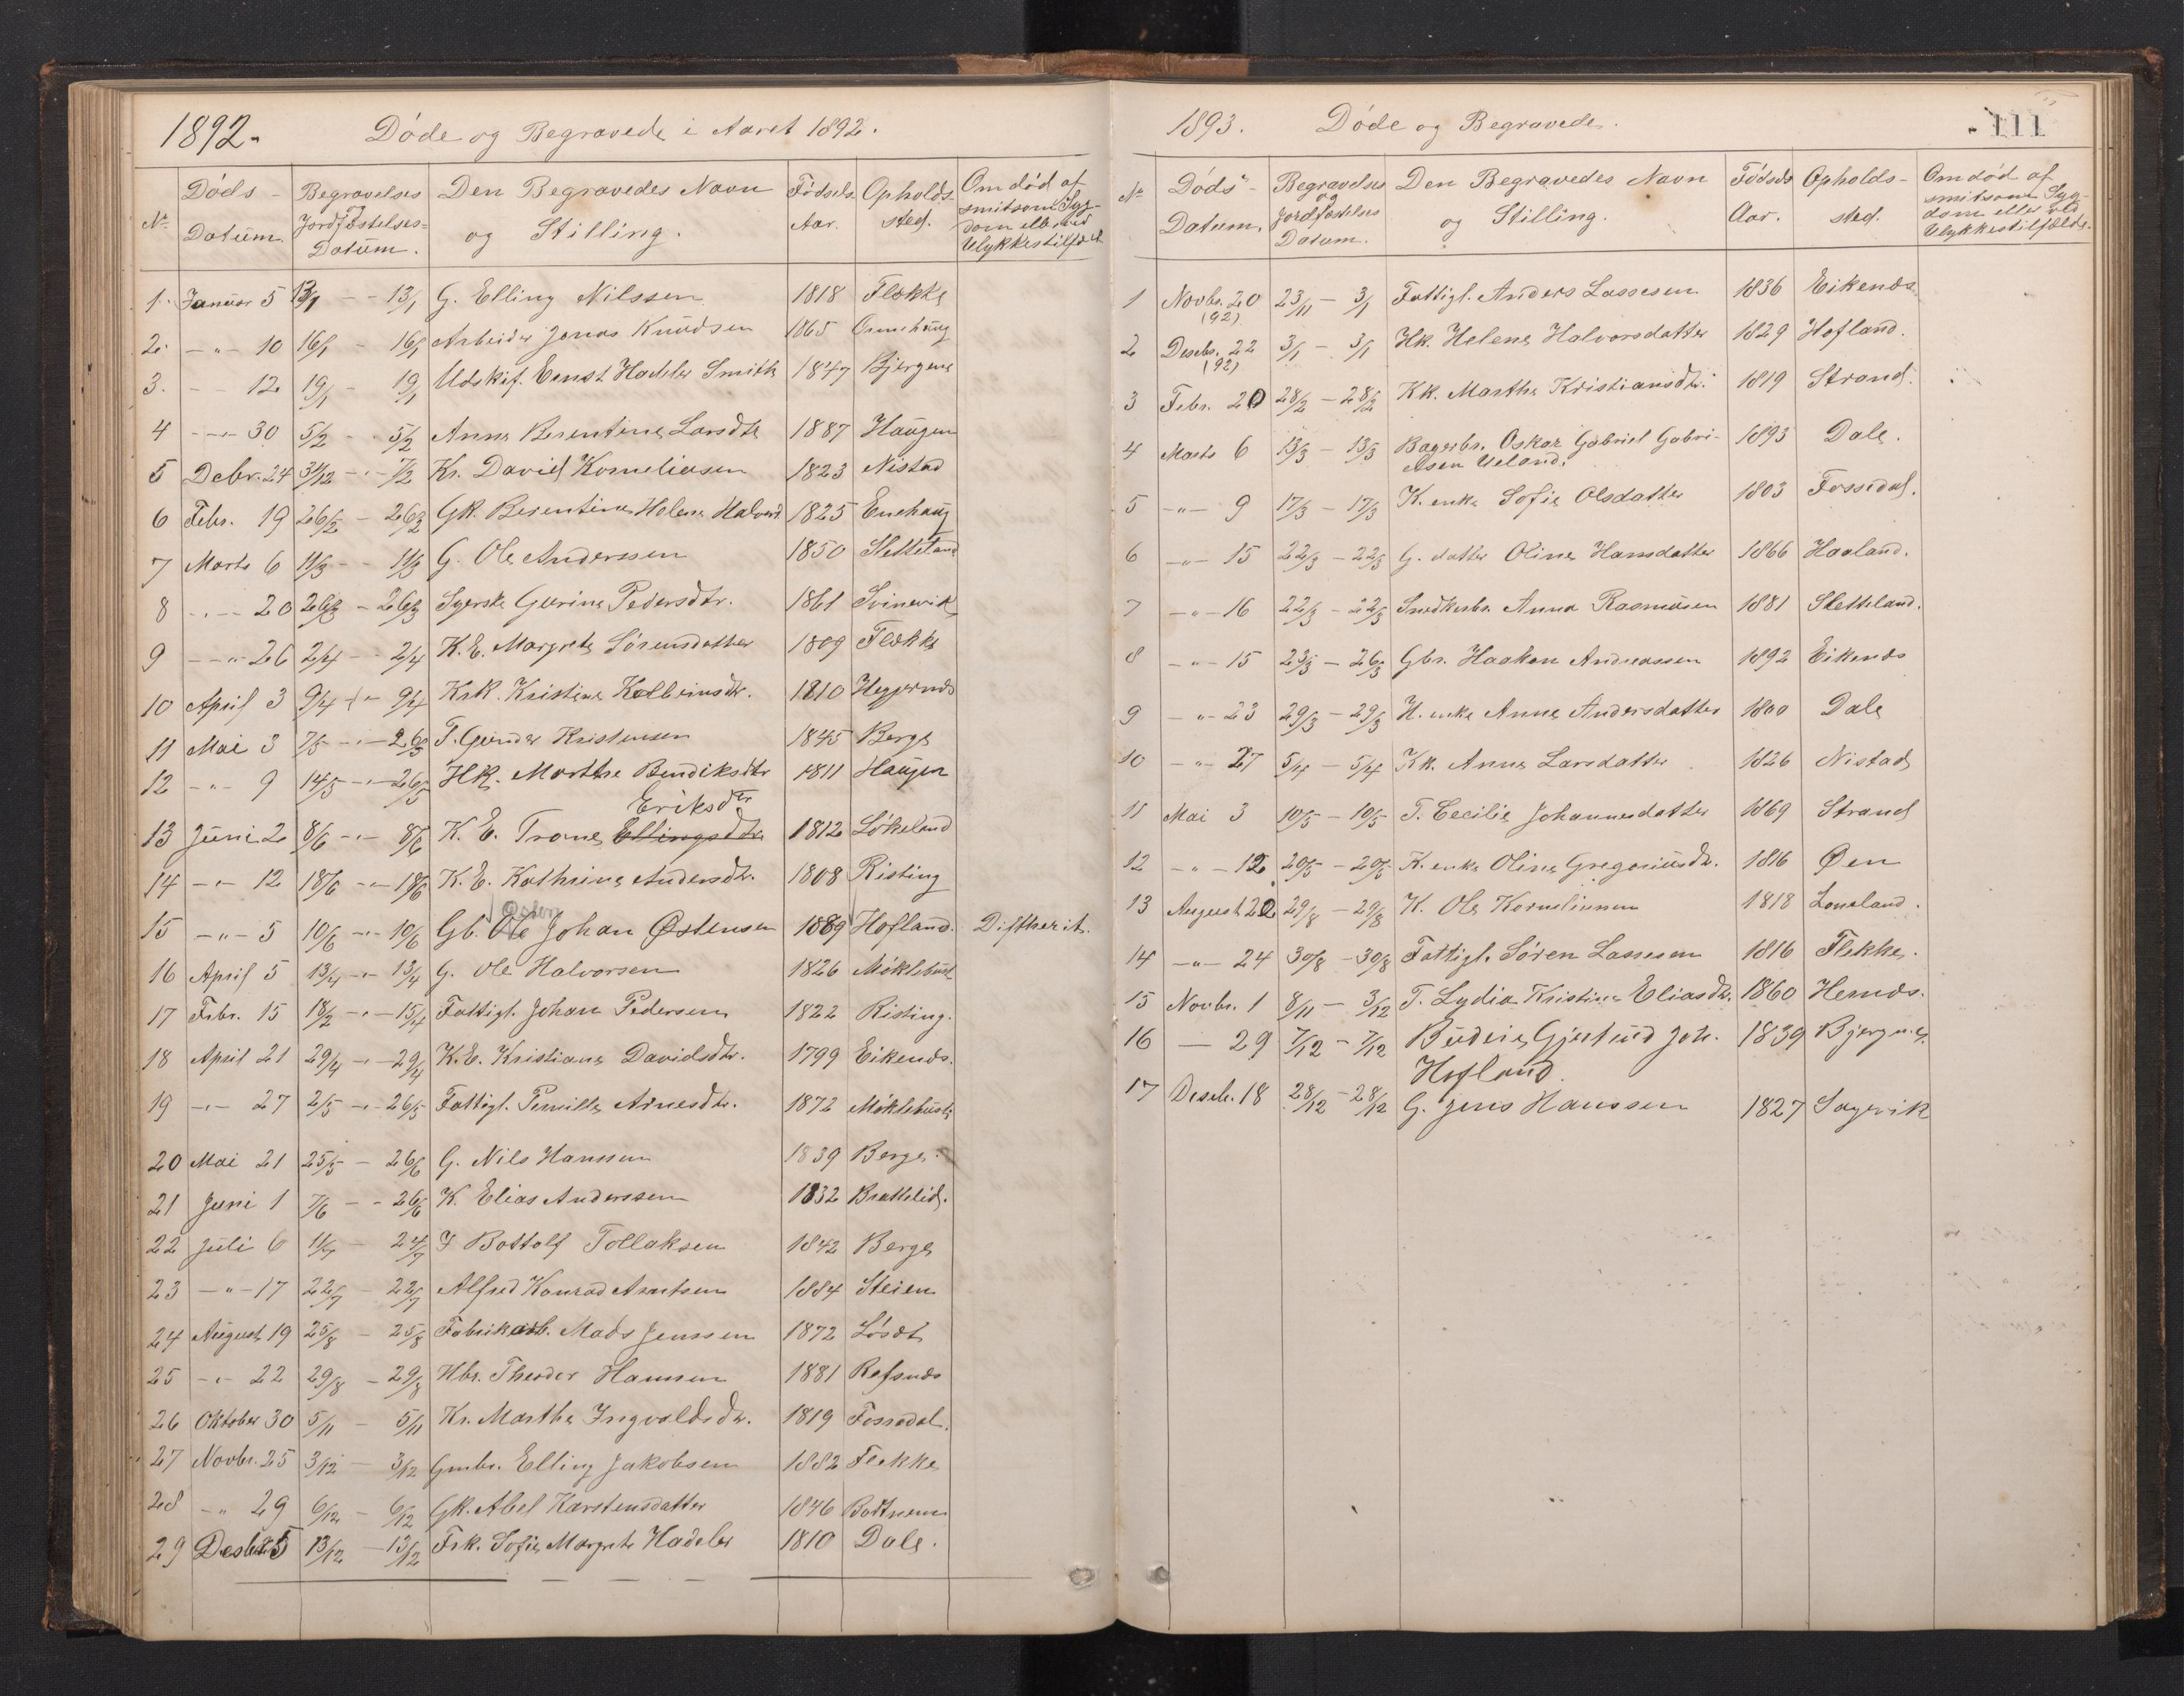 1892.
Døde og Begravede i Aaret 1892.
No
Døds-
Datum.
Begravelses
og
Jordfæstelses-
Datum.
Den Begravedes Navn
og Stilling.
Fødsels-
Aar.
Opholds-
sted.
Om død af
smitsom Syg-
dom eller ved
Ulykkestilfælde
1. Januar 5 13/1 - - 13/1 G. Elling Nilssen 1818 Flekke
2. -"- 10 16/1 - 16/1 Arbeider Jonas Knudsen 1865 Ormehaug
3. - 12 19/1 - 19/1 Udskif. Ernst Hadeler Smith 1847 Bjergene
4 -"- 30 5/2 - 5/2 Anne Berentine Larsdtr 1887 Haugen
5 Debr. 24 31/12 -"- 7/2 Kr. David Korneliasen 1823 Nistad
6 Febr. 19 26/2 - 26/2 GK. Berentine Helene Halvord. 1825 Enehaug
7 Marts 6 11/3 - - 11/3 G. Ole Anderssen 1850 Sletteland
8 -"- 20 26/3 - 26/3 Syerske Gurine Pedersdtr. 1861 Svinevik
9 -"- 26 2/4 - - 2/4 K.E. Margrete Sørensdatter 1809 Flekke
10 April 3 9/4 -"- 9/4 KrK. Kristine Kolbeinsdtr. 1810 Heggernæs
11 Mai 3 7/5 -"- 26/5 T. Gunder Kristensen 1845 Berge
12 -"- 9 14/5 -"- 26/5 HK. Marthe Bendiksdtr 1811 Haugen
Eriksdtr
13 Juni 2 8/6 -"- 8/6 K. E. Trone Ellingsdtr 1812 Løkeland
14 -"- 12 18/6 -"- 18/6 K.E. Kathrine Andersdtr. 1808 Risting
Østen
15 -"- 5 10/6 -"- 10/6 Gb. Ole Johan Østensen 1889 Hofland. Diftherit.
16 April 5 13/4 -"- 13/4 G. Ole Halvorsen 1826 Møklebust
17 Febr. 15 18/2 -"- 15/4 Fattigl. Johan Pedersen 1822 Risting.
18 April 21 29/4 -"- 29/4 K.E. Kristiane Davidsdtr. 1799 Eikenæs.
19 -"- 27 2/5 -"- 26/5 Fattigl. Pernille Arnesdtr. 1872 Møklebust
20 Mai 21 25/5 - 26/6 G. Nils Hanssen 1839 Berge.
21 Juni 1 7/6 - - 26/6 K. Elias Anderssen 1832 Brattelid.
22 Juli 6 11/7 - 24/7 I Bottolf Tollaksen 1842 Berge
23 -"- 17 22/7 - 22/7 Alfred Konrad Arntsen 1884 Steien
24 August 19 25/8 - 25/8 Fabrikarb. Mads Jenssen 1872
25 -"- 22 29/8 - 29/8 Hbr. Theodor Hanssen 1881 Refsnæs
26 Oktober 30 5/11 - 5/11 Kr. Marthe Ingvaldsdtr. 1819 Fossedal.
27 Novbr. 25 3/12 - 3/12 Gmbr. Elling Jakobsen 1882 Flekke
28 -"- 29 6/12 - 6/12 GK. Abel Karstensdatter 1846
29 Desbr. 5 13/12 - 13/12 Frk. Sofie Margrete Hadeler 1810 Dale.
1893.
Døde og Begravede.
111
No
Døds-
Datum.
Begravelses
og
Jordfæstelses
Datum.
Den Begravedes Navn
og Stilling.
Fødsels
Aar.
Opholds-
sted.
Om død af
smitsom Syg-
dom eller ved
Ulykkestilfælde.
1 Novbr. 20 23/11 - 3/1 Fattigl. Anders Lassesen 1836 Eikenæs
(92)
2 Desebr. 22 3/1 - 3/1 Hk. Helene Halvorsdatter 1829 Hofland.
(92)
3 Febr. 20 28/2 - 28/2 KK. Marthe Kristiansdtr. 1819 Strand.
4 Marts 6 13/3 - 13/3 Bagerbr. Oskar Gabriel Gabri- 1893 Dale.
elsen Ueland.
5 -"- 9 17/3 - 17/3 K. enke Sofie Olsdatter 1803 Fossedal.
6 -"- 15 22/3 - 22/3 G. datter Oline Hansdatter 1866 Haaland.
7 -"- 16 22/3 - 22/3 Snedkerbr. Anna Rasmusen 1881 Sletteland.
8 -"- 15 23/3 - 26/3 Gbr. Haakon Andreassen 1892 Eikenæs
9 -"- 23 29/3 - 29/3 H. enke Anne Andersdatter 1800 Dale
10 -"- 27 5/4 - 5/4 Kk. Anne Larsdatter 1826 Nistad
11 Mai 3 10/5 - 10/5 T. Cecilie Johannesdatter 1869 Strand
12 -"- 12 20/5 - 20/5 K. enke Oline Gregoriusdtr. 1816 Øen
13 August 22 29/8 - 29/8 K. Ole Korneliussen 1818 Loneland.
14 -"- 24 30/8 - 30/8 Fattigl. Søren Lassesen 1816 Flekke.
15 Novbr. 1 8/11 - 3/12 T. Lydia Kristine Eliasdtr. 1860 Hernæs.
16 - 29 7/12 - 7/12 Budeie Gjertrud Joh. 1839 Bjergene.
Hofland
17 Deseb. 18 28/12 - 28/12 G. Jens Hanssen 1827 Sagevik